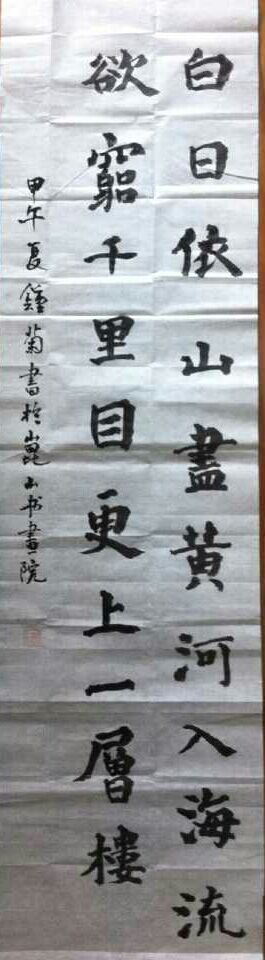 白日依山盡黄河入海流
欲窮千里目更上一層樓
甲午夏鐘菊書於崑山书畫院